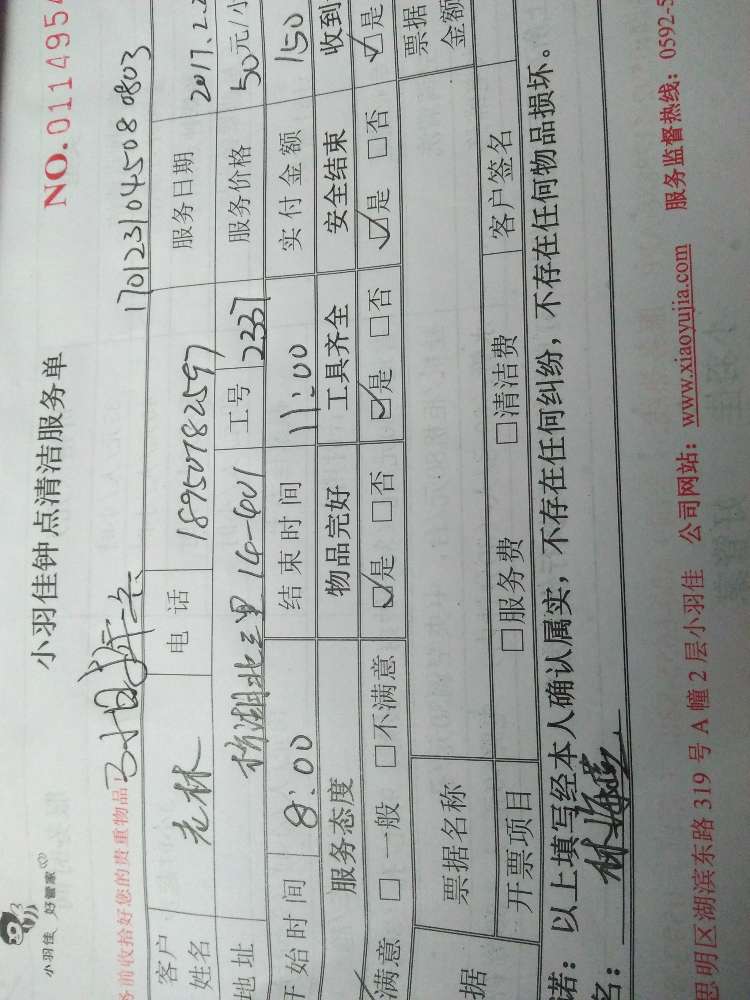 小羽佳 好管家
小羽佳钟点清洁服务单
NO.0114954
务前收拾好您的贵重物品
170123104508 0803
客户姓名 老林 电话 18950782597 服务日期 2017.2.2
地址 湖北三里 14-401 工号 2337 服务价格 50元/小
开始时间 8:00 结束时间 11:00 实付金额 150
服务态度 物品完好 工具齐全 安全结束 收到
满意 □一般 □不满意 ☑是 □否 ☑是 □否 ☑是 □否 ☑是
据 票据名称 票据金额
开票项目 □服务费 □清洁费 客户签名
诺：以上填写经本人确认属实，不存在任何纠纷，不存在任何物品损坏。
名：
思明区湖滨东路 319 号 A 幢 2 层小羽佳 公司网站：www.xiaoyujia.com 服务监督热线：0592-5